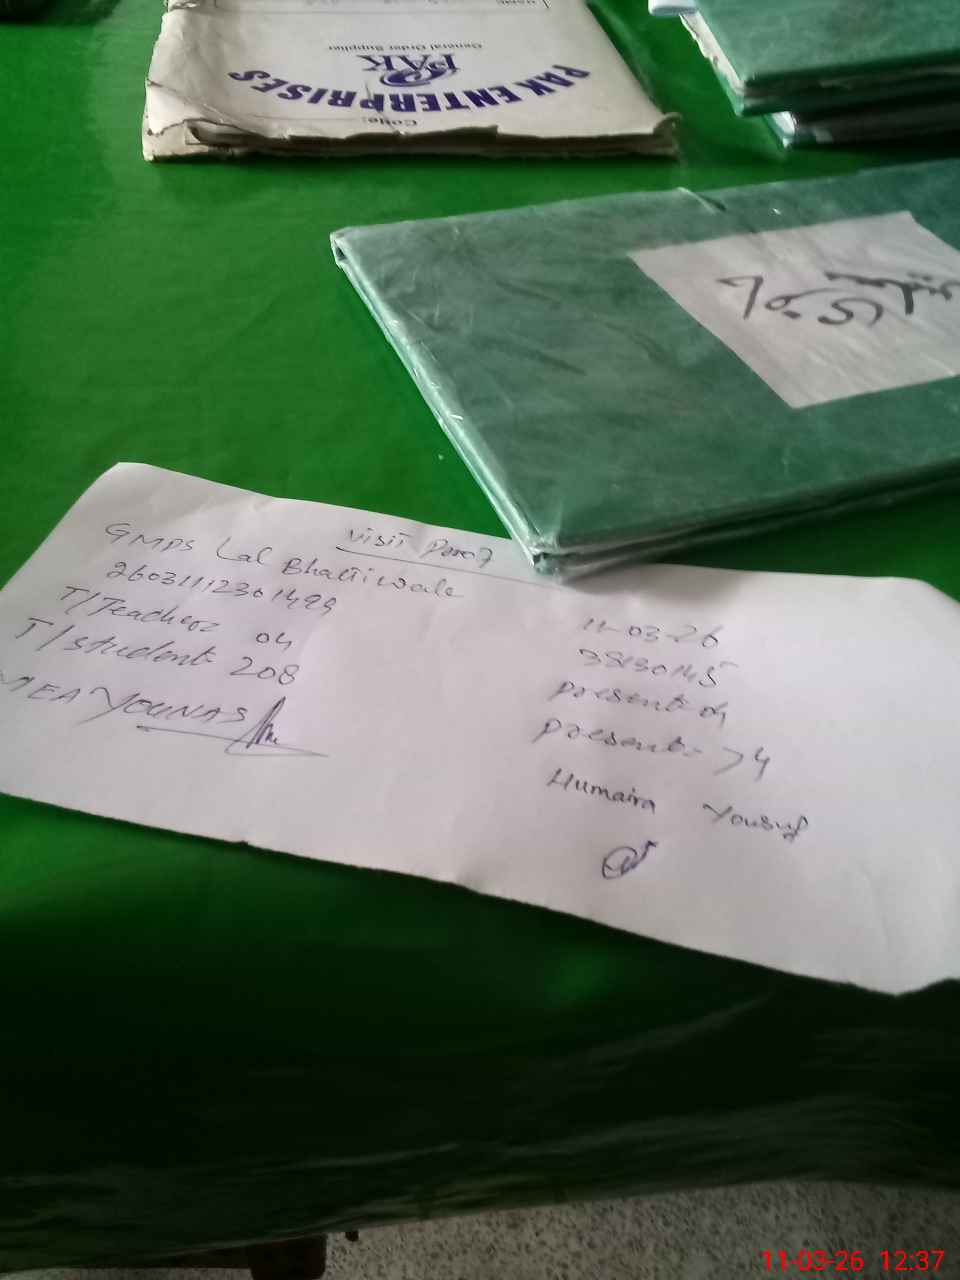 Code:
PAK ENTERPRISES
PAK
General Order Supplier
Visit Proof
GMPS Lal Bhattiwala
11-03-26
26031112301499
38130145
T/Teacher 04
present 04
T/student 208
present = 74
MEA YOUNAS
Humaira Yousuf
11-03-26 12:37